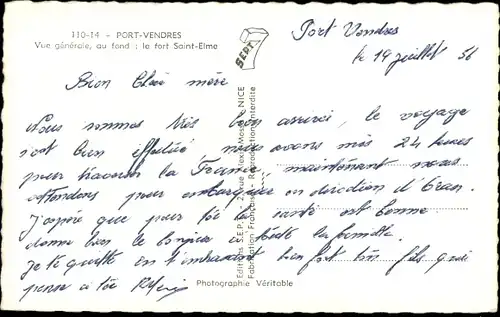 110-14 - PORT-VENDRES
Vue générale, au fond : le fort Saint-Elme
SEPT
Port Vendres
le 19 juillet 56
Bien Chère mère
Nous sommes très bien arrivé, le voyage
s'ait bien effectué nous avons mis 24 heures
pour traverser la France, maintenant nous
attendons pour embarquer en direction d'Oran.
J'espère que pour toi la santé est bonne
donne bien le bonjour à toute la famille.
Je te quitte en t'embrassant bien fort ton fils qui
pense à toi
Editions S.E.P.T., 2, rue Alex-Mesre NICE
Fabrication Française - Reproduction Interdite
Photographie Véritable